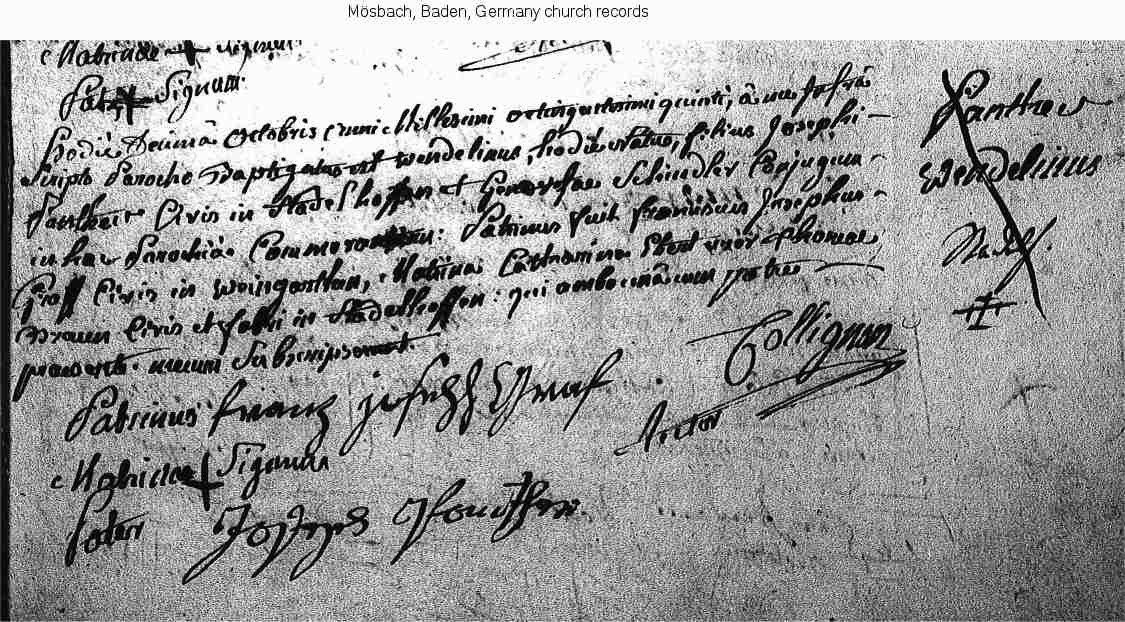 Mösbach, Baden, Germany church records
Matrinae + Signum
Pat + Signum
hodie Decimâ octobris anni Millesimi octingentesimi quinti, â me Infrâ
Scripto Parocho Baptizatus est wendelinus, hodie natus, filius Josephi
Panther Civis in Stadelhoffen et Genovefae Schindler Conjugum
in hac Parochiâ Commorantium: Patrinus fuit franciscus Josephus
Graff Civis in weingarthen, Matrina Catharina uxor thomae
Braun Civis et fabri in Stadelhoffen: qui ambo unâ cum patre
praesente mecum Subscripserunt.
Panther
wendelinus
Collignon
Rector
Patrinus franz joseph Graf
Matrinae + Signum
Pater Joseph Panther